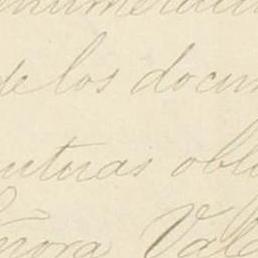 enumeration
de los docum
uturas obli
eñora Vale